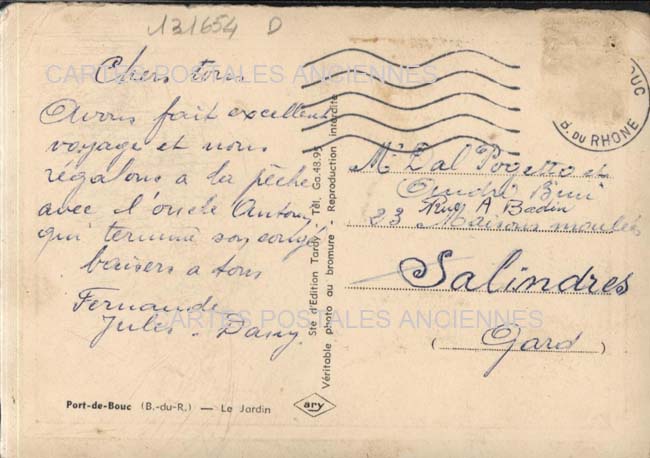 131654 D
Chers tous
Avons fait excellent
voyage et nous
régalons a la pêche
avec l'oncle Antony
qui termine son congé
baisers a tous
Fernande
Jules - Dany
Port-de-Bouc (B.-du-R.) — Le Jardin
Sté d'Edition Tardy Tél. Ga.48.95
Véritable photo au bromure - Reproduction interdite
ary
B. DU RHONE
Mr Dal Pogetto et
André
Rue A Badin
23 Maisons moulées
Salindres
(Gard)
CARTES POSTALES ANCIENNES
CARTES POSTALES ANCIENNES